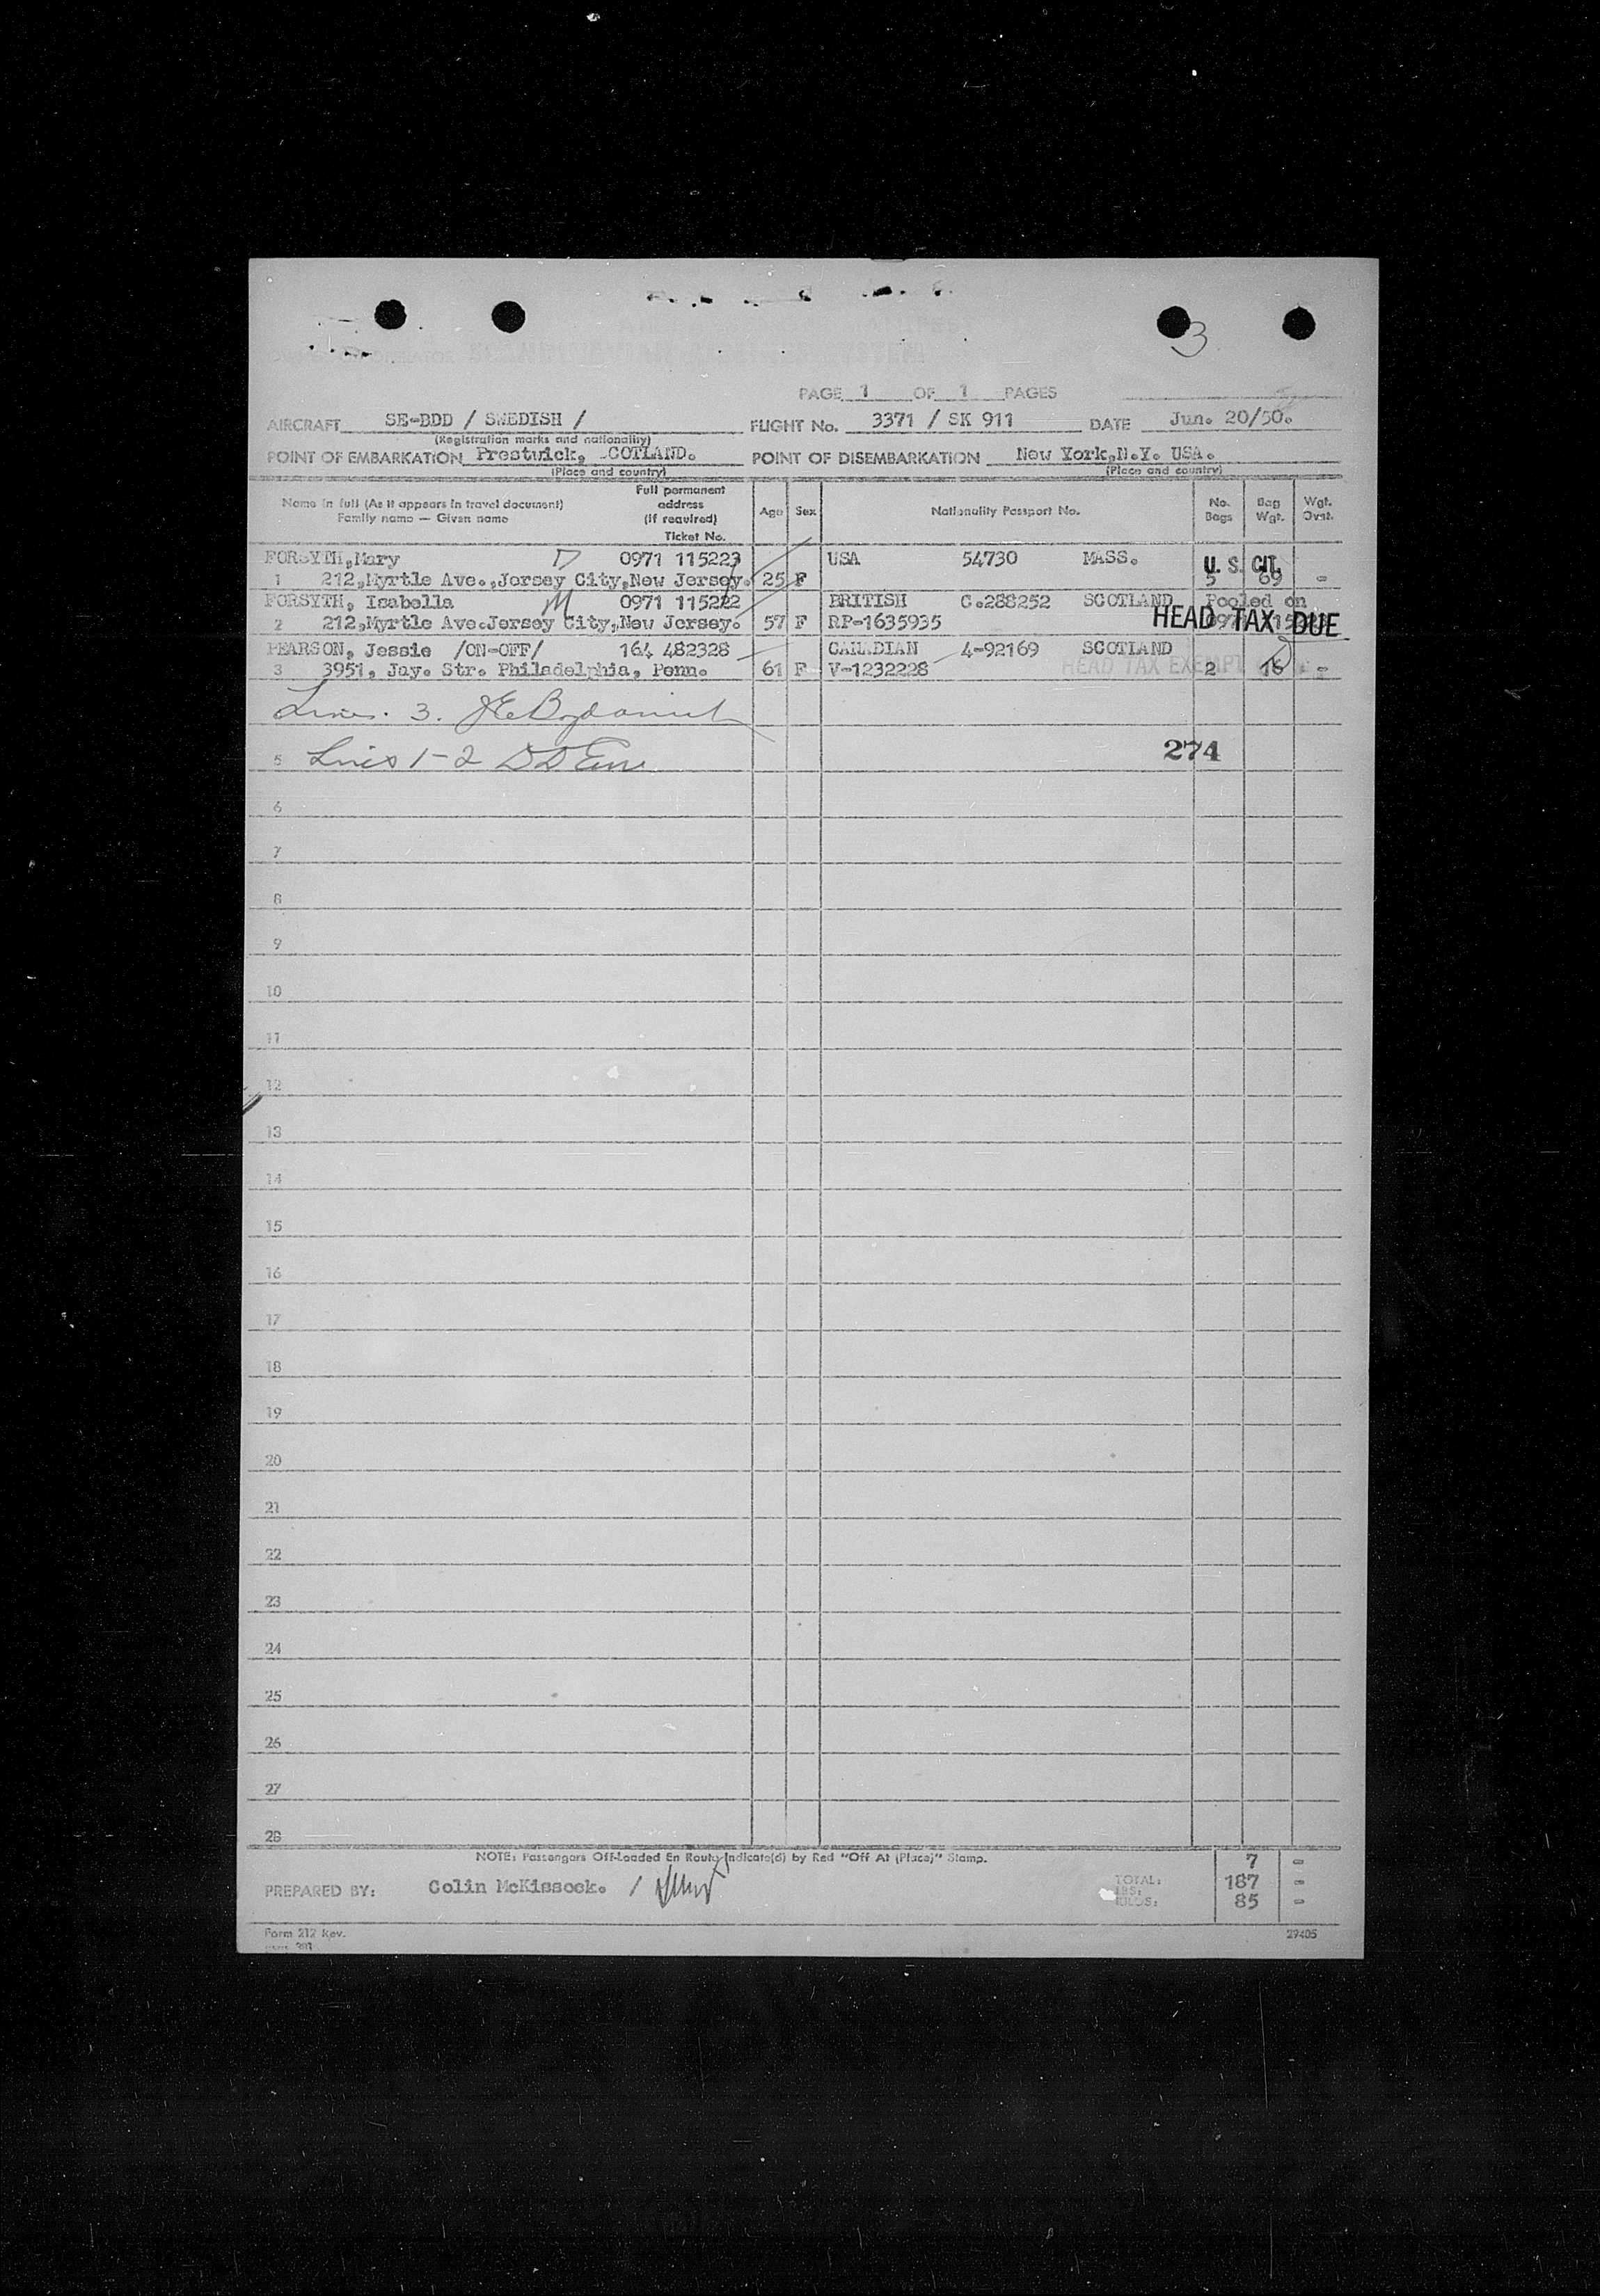 3
PAGE 1 OF 1 PAGES
AIRCRAFT SE-BDD / SWEDISH / FLIGHT No. 3371 / SK 911 DATE Jun. 20/50.
(Registration marks and nationality)
POINT OF EMBARKATION Prestwick, -COTLAND. POINT OF DISEMBARKATION New York,N.Y. USA.
(Place and country) (Place and country)
Name in full (As it appears in travel document) Family name — Given name Full permanent address (If required) Ticket No. Age Sex Nationality Passport No. No. Bags Bag Wgt. Wgt. Ovst.
FORSYTH,Mary 0971 115223 USA 54730 MASS. U. S. CIT.
1 212,Myrtle Ave.,Jersey City,New Jersey. 25 F 5 69 -
FORSYTH, Isabella M 0971 115222 BRITISH C.288252 SCOTLAND Pooled on
2 212,Myrtle Ave.Jersey City,New Jersey. 57 F RP-1635935 HEAD TAX DUE
PEARSON, Jessie /ON-OFF/ 164 482328 CANADIAN 4-92169 SCOTLAND
3 3951, Jay. Str. Philadelphia, Penn. 61 F V-1232228 HEAD TAX EXEMPT 2 16 -
Lines. 3.
5 Lines 1-2 274
6
7
8
9
10
11
12
13
14
15
16
17
18
19
20
21
22
23
24
25
26
27
28
NOTE: Passengers Off-Loaded En Route Indicate(d) by Red "Off At (Place)" Stamp. 7 -
PREPARED BY: Colin McKissock. / TOTAL: LBS: 187 -
KILOS: 85 -
Form 212 Rev. 29405